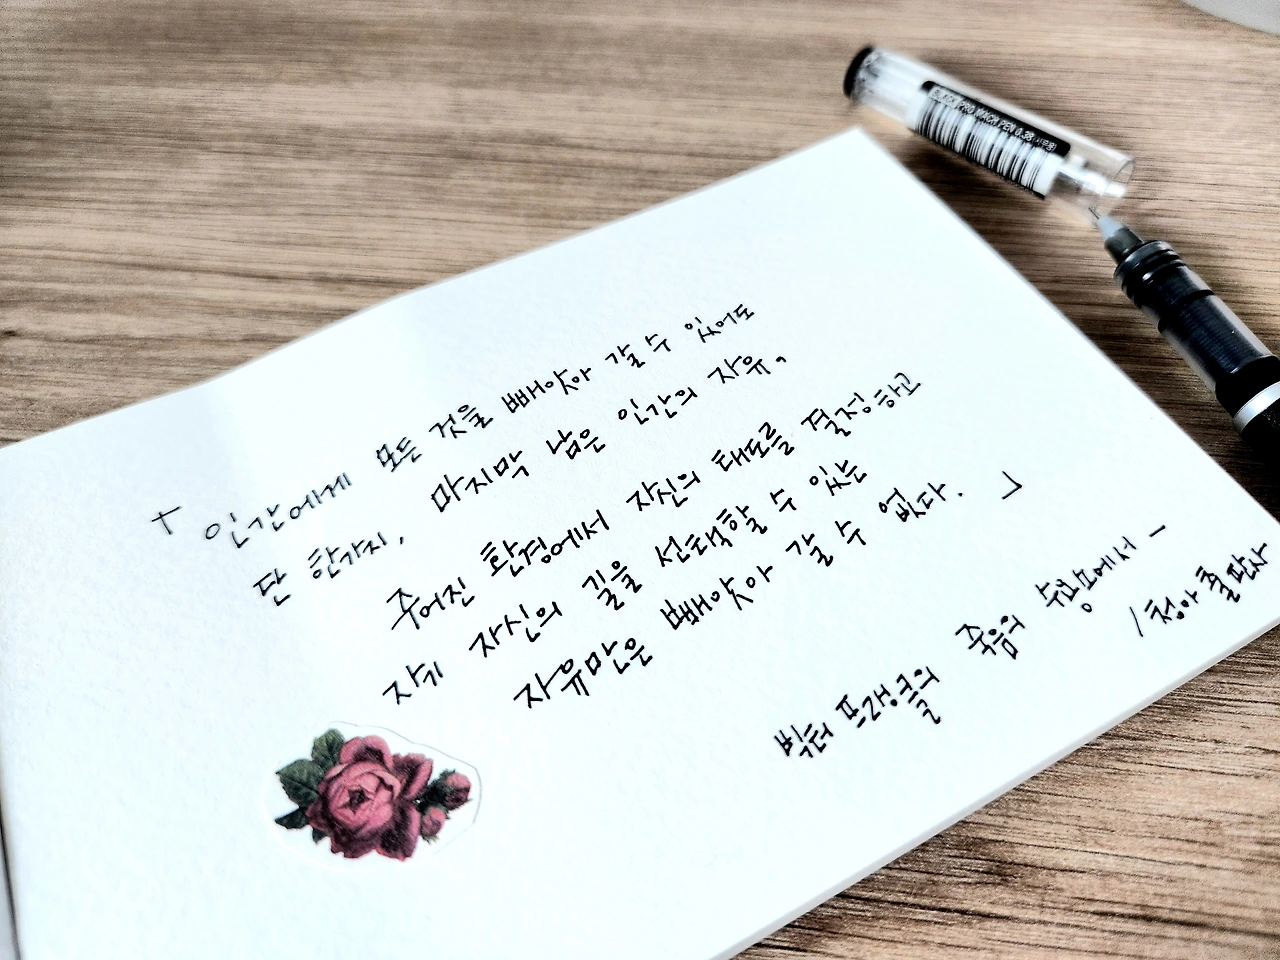 PRO MACH PEN 0.38
「인간에게 모든 것을 빼앗아 갈 수 있어도
단 한가지, 마지막 남은 인간의 자유,
주어진 환경에서 자신의 태도를 결정하고
자기 자신의 길을 선택할 수 있는
자유만은 빼앗아 갈 수 없다. 」
빅터 프랭클의 죽음의 수용소에서 –
/ 청아출판사